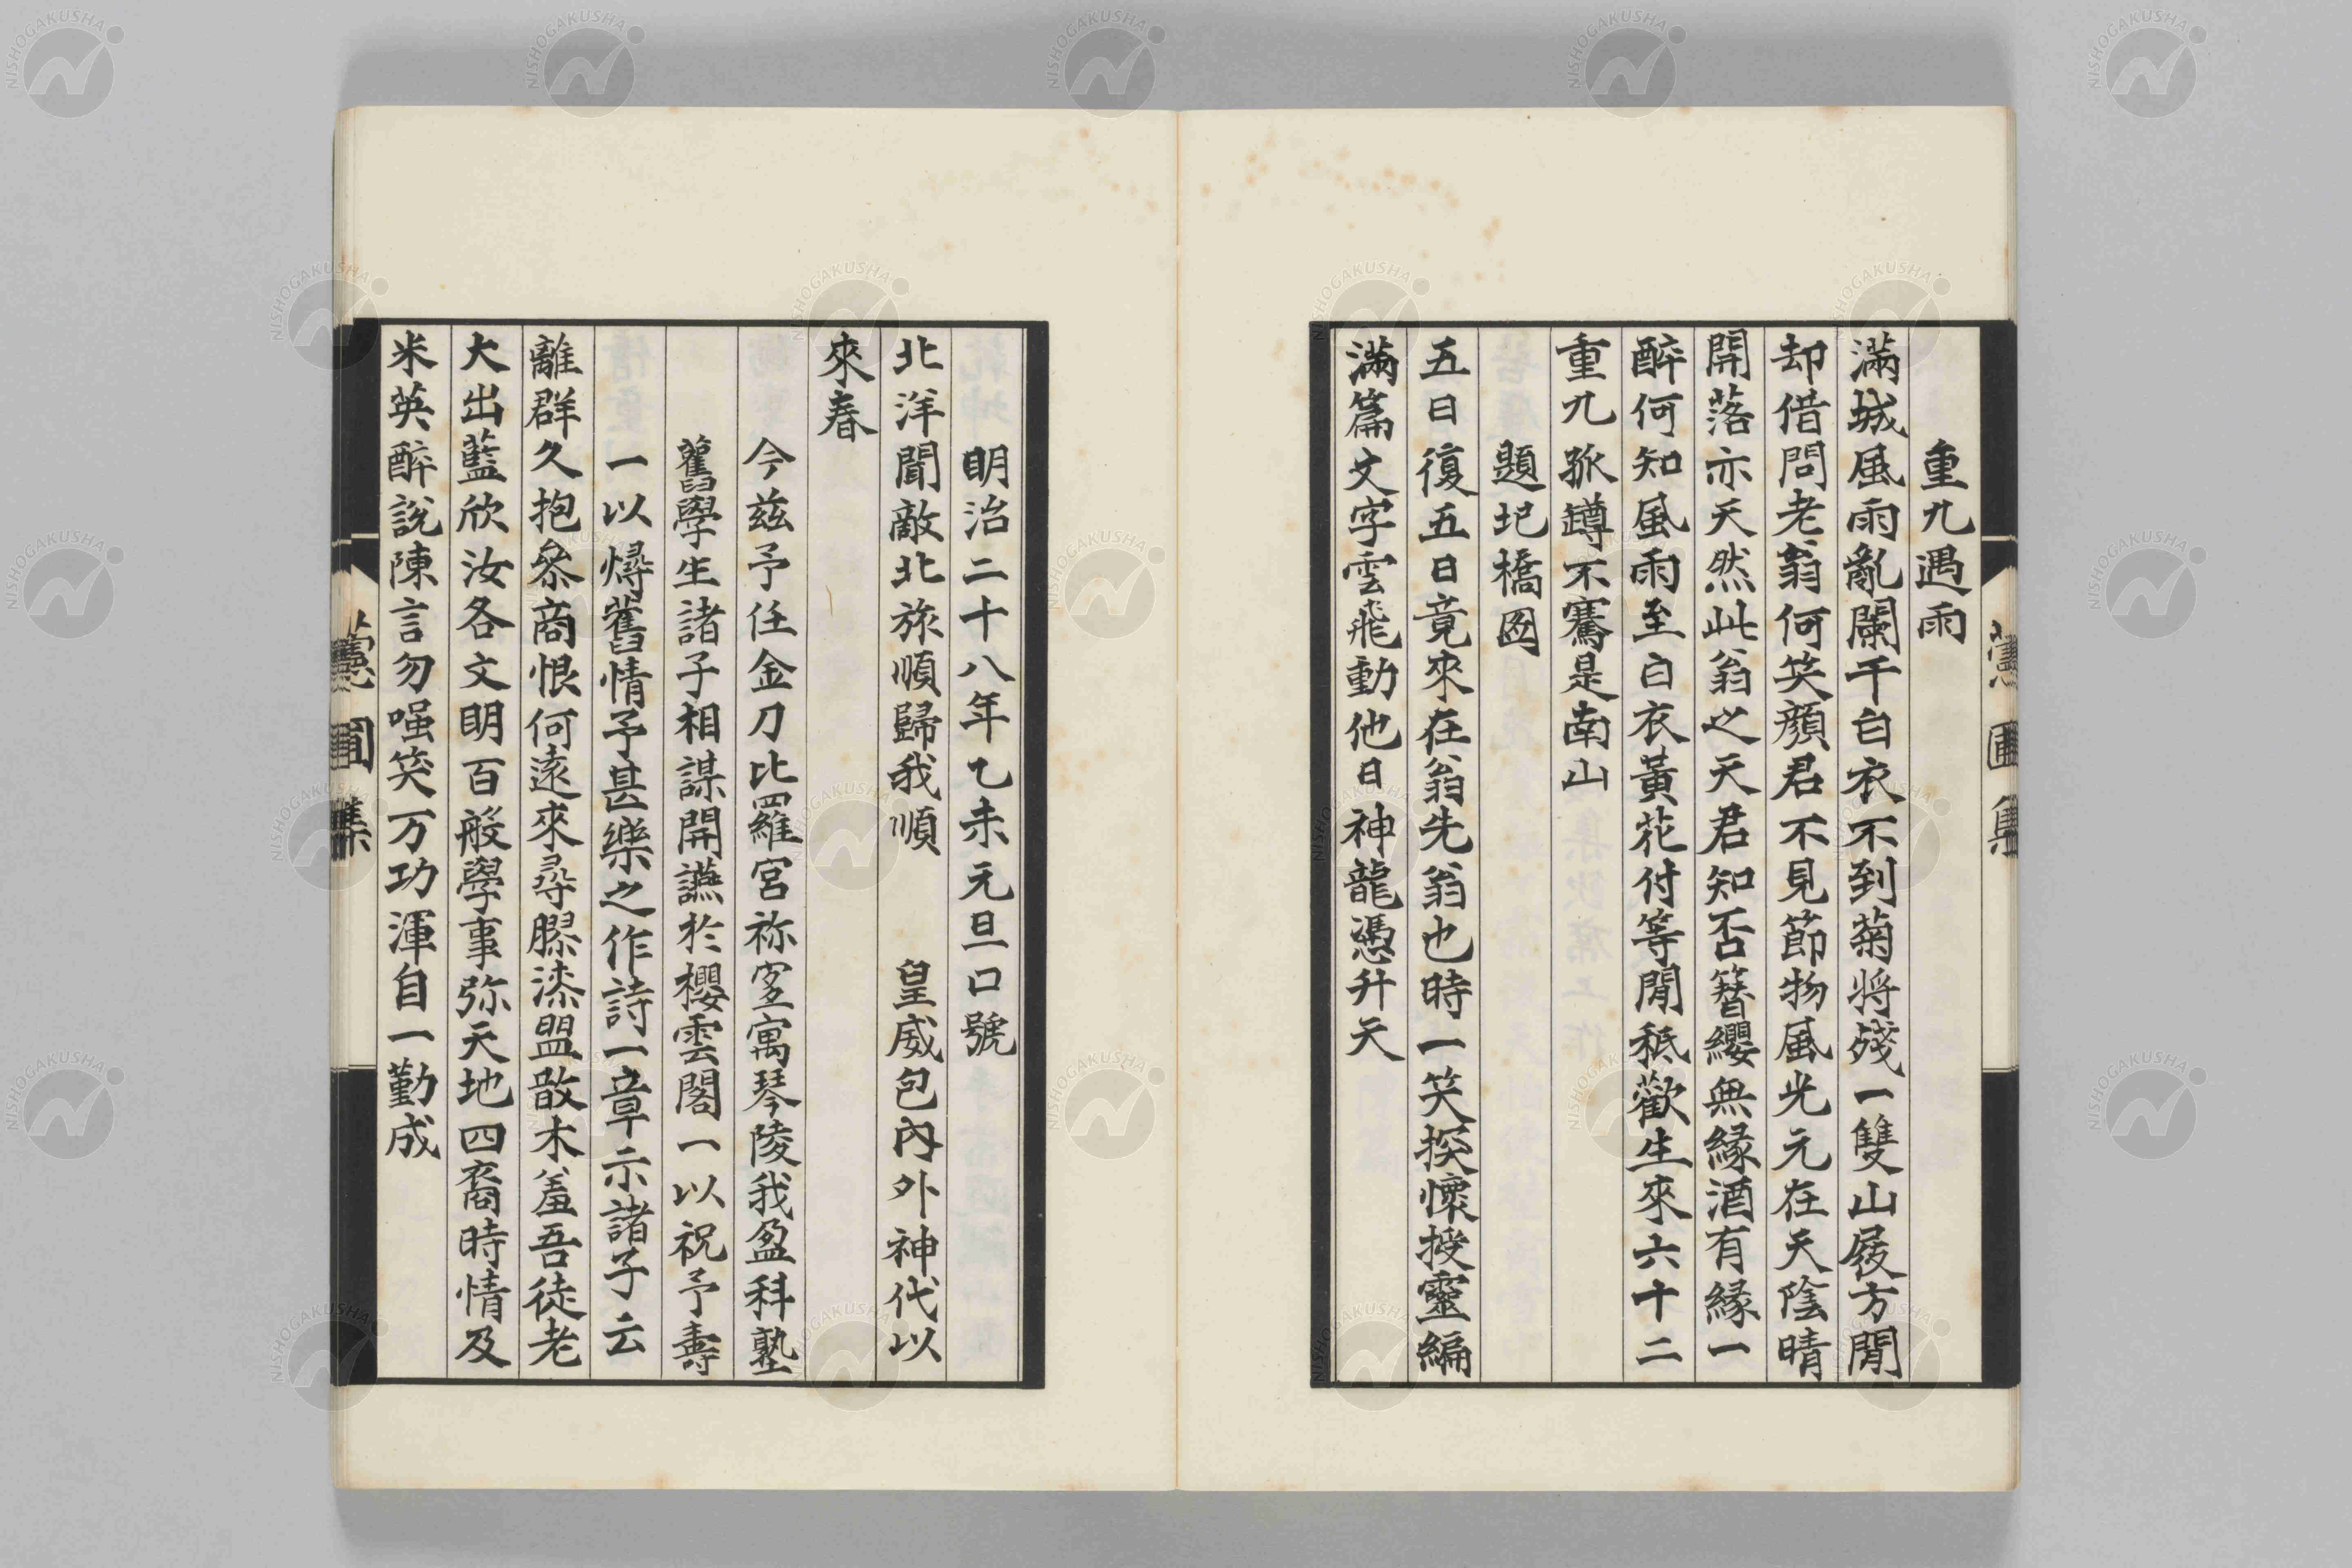 重九遇雨
滿城風雨亂闌干白衣不到菊將殘一雙山屐方閒
却借問老翁何笑顏君不見節物風光元在天陰晴
開落亦天然此翁之天君知否簪纓無緣酒有緣一
醉何知風雨至白衣黃花付等閒秪歡生來六十二
重九孤罇不騫是南山
題圯橋図
五日復五日竟來在翁先翁也時一笑探懷授靈編
滿篇文字雲飛動他日神龍憑升天
憲圃集
明治二十八年乙未元旦口號
北洋聞敵北旅順歸我順 皇威包內外神代以
來春
今茲予任金刀比羅宮祢宜寓琴陵我盈科塾
舊學生諸子相謀開讌於櫻雲閣一以祝予壽
一以燖舊情予甚樂之作詩一章示諸子云
離群久抱參商恨何遠來尋膠漆盟散木羞吾徒老
大出藍欣汝各文明百般學事弥天地四裔時情及
米英醉說陳言勿嗤笑万功渾自一勤成
憲圃集
NISHOGAKUSHA